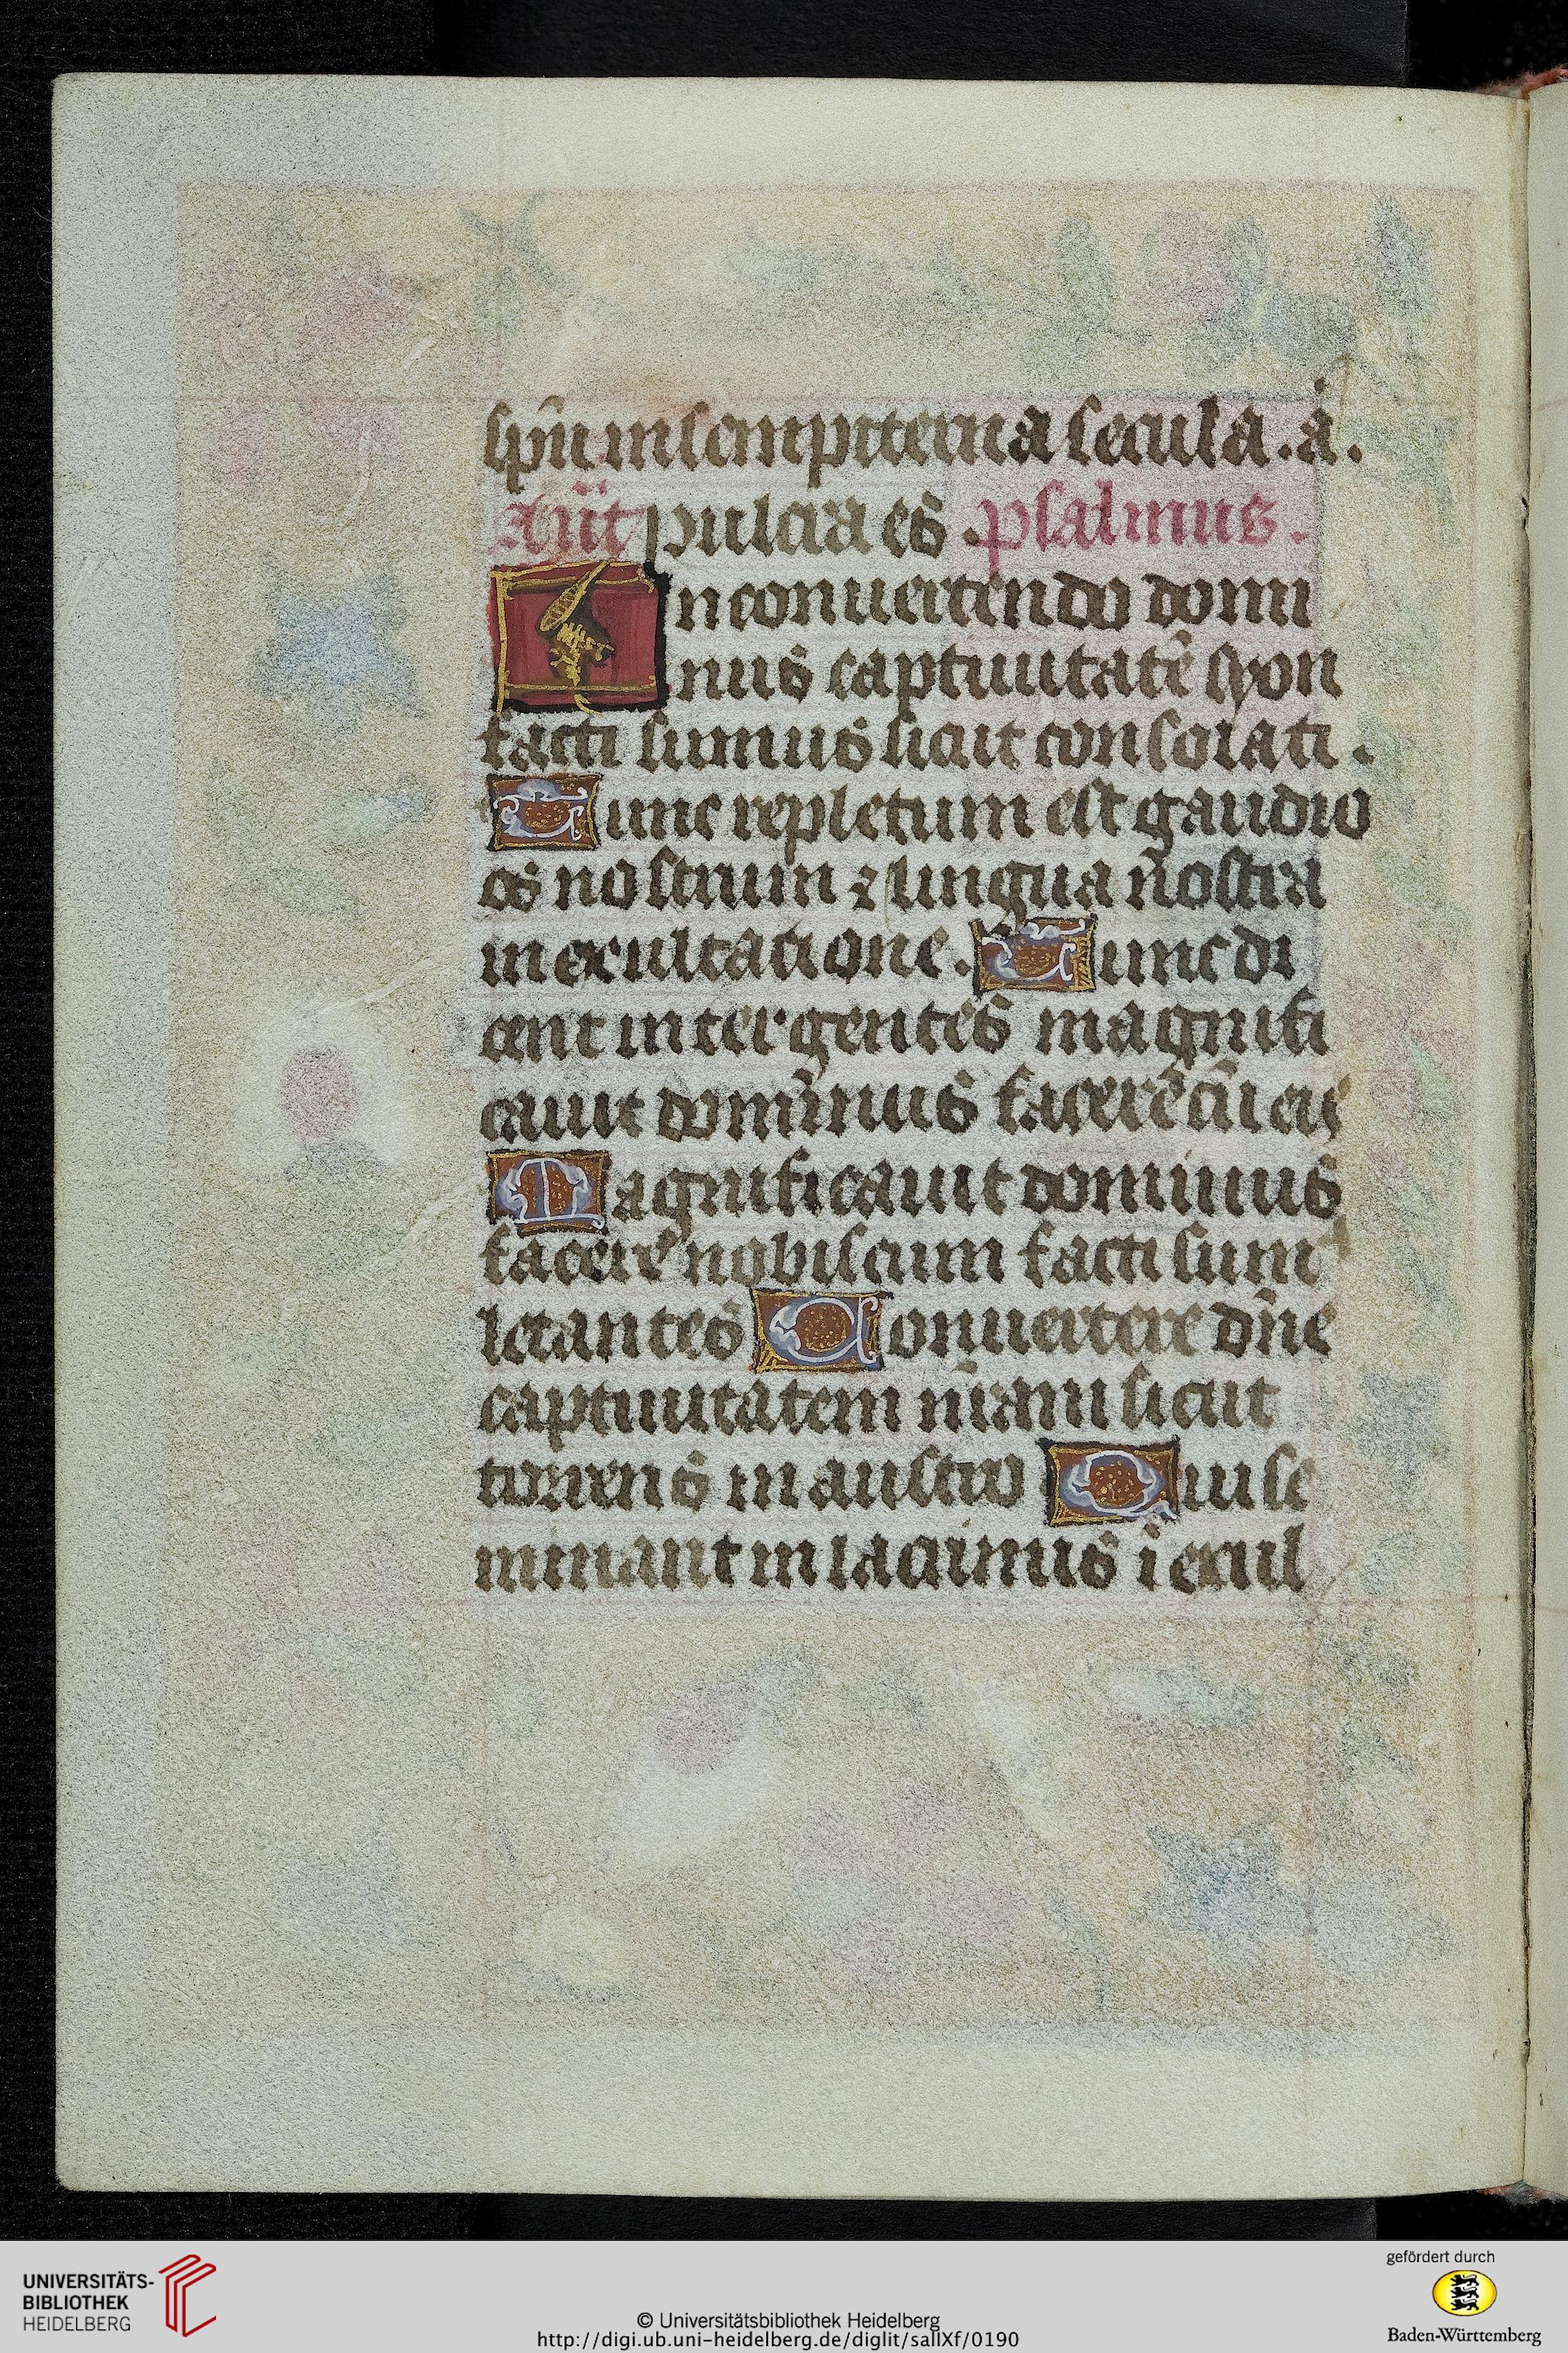 spū in sempiterna secula. a.
Añt pulcra es. psalmus.
In conuertendo domi
nus captiuitatē syon
facti sumus sicut consolati.
Tunc repletum est gaudio
os nostrum ⁊ lingua nostra
in exultatione. Tunc di
cent inter gentes magnifi
cauit dominus facere cū eis
Magnificauit dominus
facere nobiscum facti sumꝰ
letantes Conuertere dn̄e
captiuitatem nr̄am sicut
torrens in austro Qui se
minant in lacrimis ī exul
UNIVERSITÄTS-
BIBLIOTHEK
HEIDELBERG
© Universitätsbibliothek Heidelberg
http://digi.ub.uni-heidelberg.de/diglit/salIXf/0190
gefördert durch
Baden-Württemberg